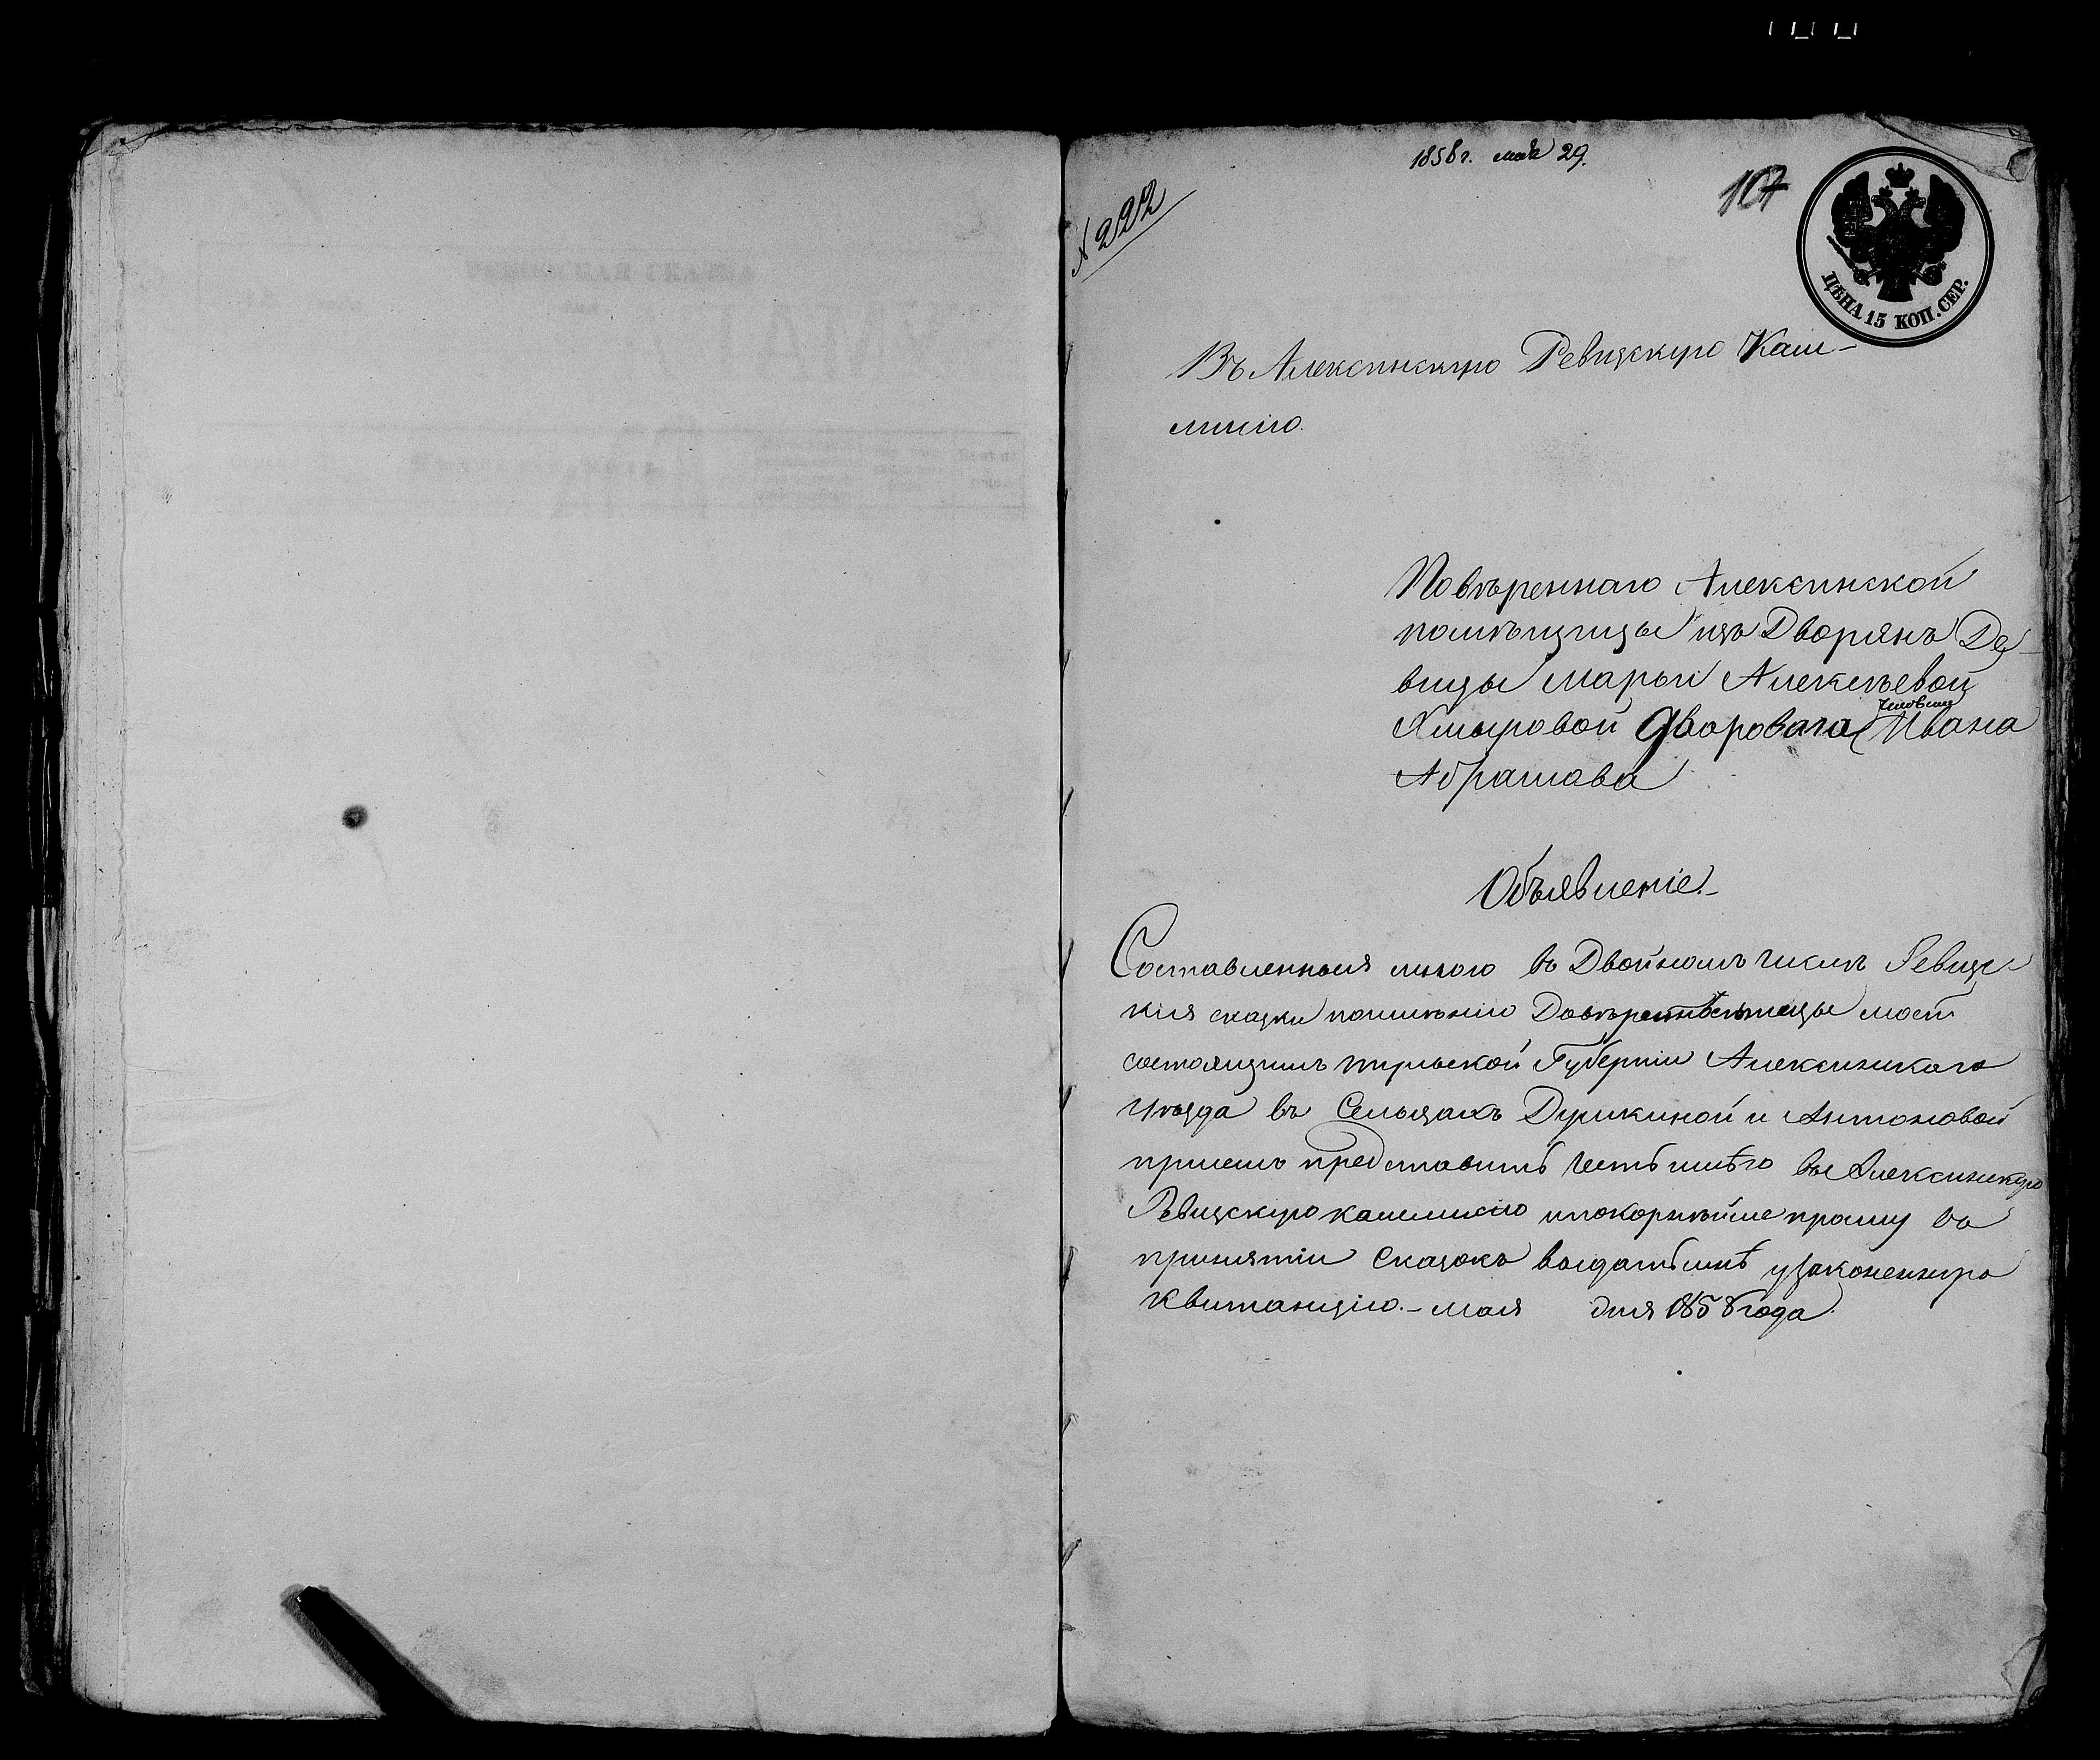 1858 г. мая 29.
№ 222
107
ЦѢНА 15 КОП. СЕР.
Въ Алексинскую Ревизскую Кам-
мисію.
Повѣреннаго Алексинской
помѣщицы изъ Дворянъ Де-
вицы Марьи Алексѣевой
Хмыровой Дворовага человека Ивана
Абрамава
Объявленіе.-
Составленныя мною въ Двойномъ числѣ Ревизс-
кія сказки поимѣнію Довѣрительницы моей
состоящимъ тульской Губерніи Алексинскаго
Уѣзда въ Сельцахъ Дурикиной и Антоновой
присемъ представить честь имѣю въ Алексинскую
Ревизскую каммисію ипокорнѣйше прошу въ
принятіи Сказокъ выдать мнѣ узаконенную
Квитанцію.- мая дня 1858 года